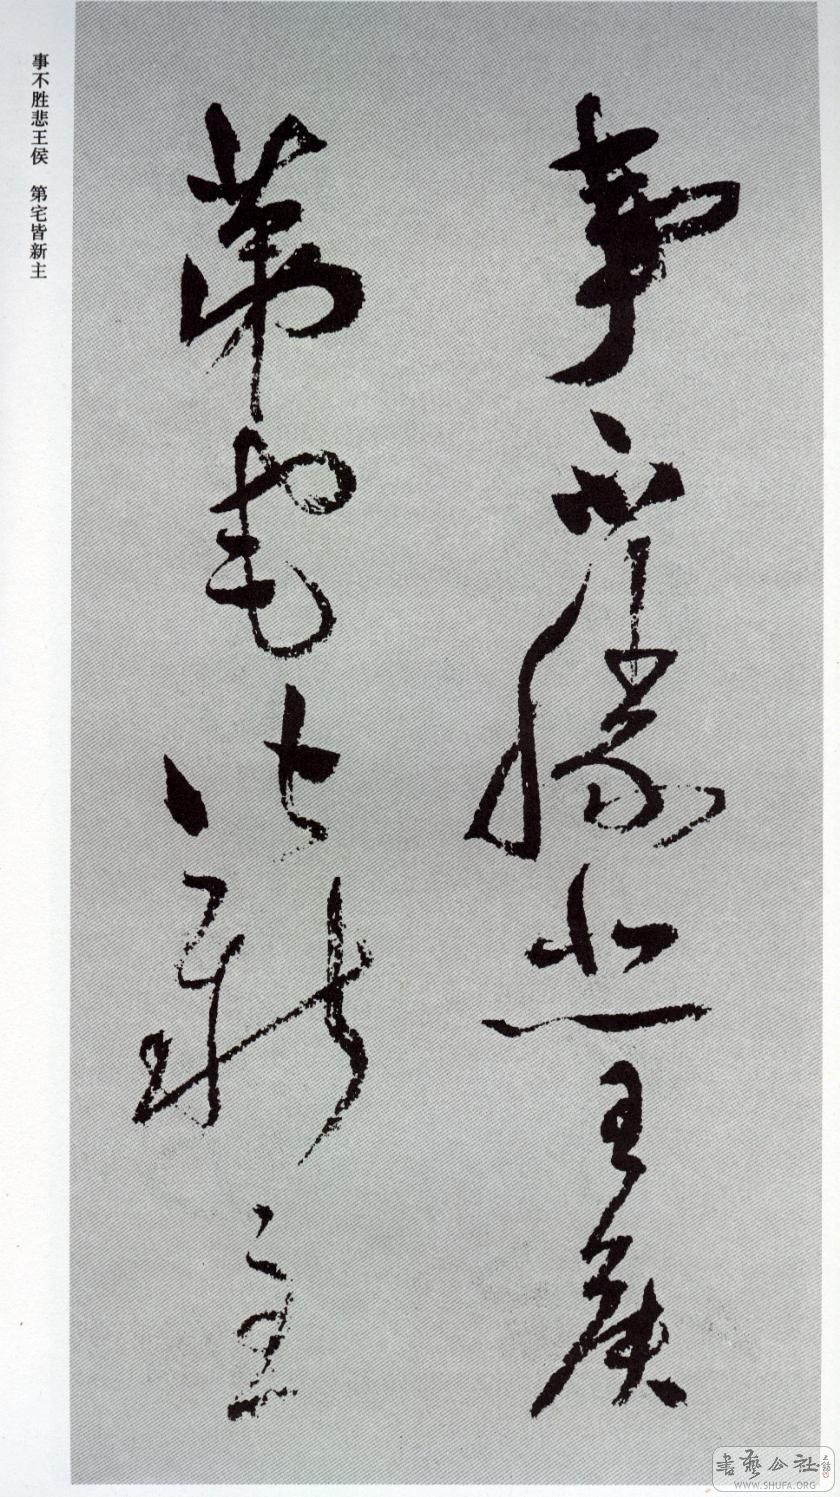 事不勝悲王侯
第宅皆新主
事不胜悲王侯 第宅皆新主
書藝公社
WWW.SHUFA.ORG